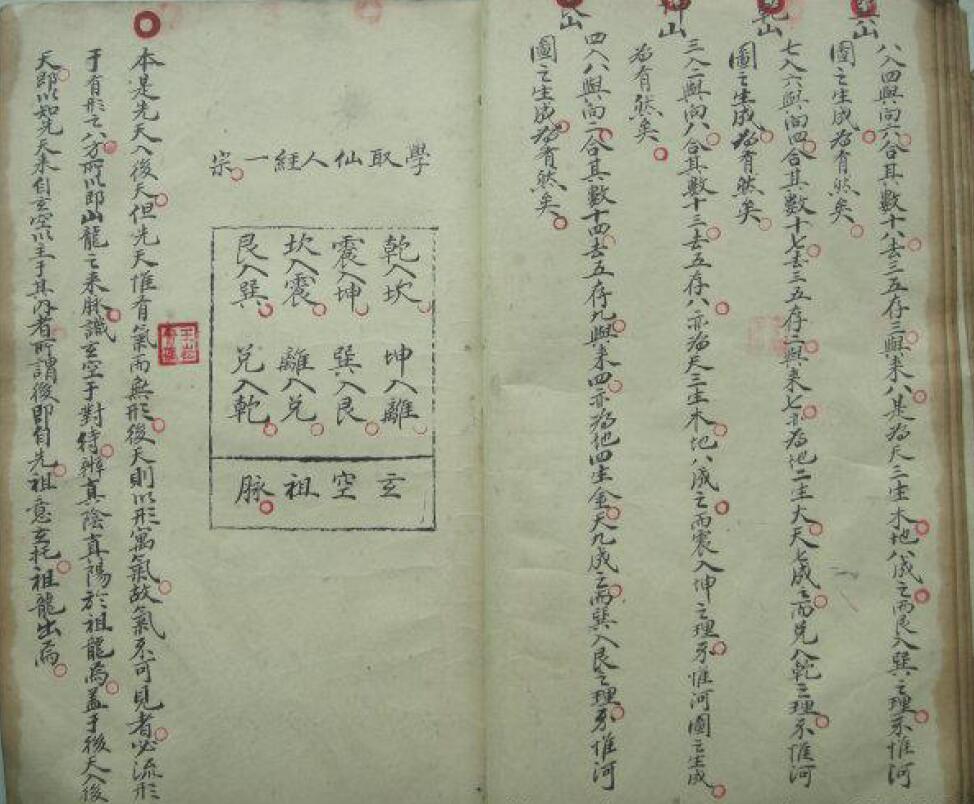 八入四與向六合其數十八去三五存三與来八是為天三生木地八成之而艮入巽之理不惟河
圖之生成為有然矣
七入六與向四合其數十七去三五存二與来七亦為地二生火天七成之而兑入乾之理不惟河
圖之生成為有然矣
三入二與向八合其數十三去五存八亦為天三生木地八成之而震入坤之理不惟河圖之生成
為有然矣
四入八與向二合其數十四去五存九與来四亦為地四生金天九成之而巽入艮之理不惟河
圖之生成為有然矣
山
山
山
山
學取仙人經一宗
乾入坎 坤入離
震入坤 巽入艮
坎入震 離入兑
艮入巽 兑入乾
玄空祖脉
本是先天入後天但先天惟有氣而無形後天則以形寓氣故氣不可見者必流形
于有形之八方所以即山龍之来脉識玄空于對待辨真陰真陽於祖龍為盖于後天入後
天即以知先天来自玄空以主于其内者所謂後即自先祖意玄托祖龍出而